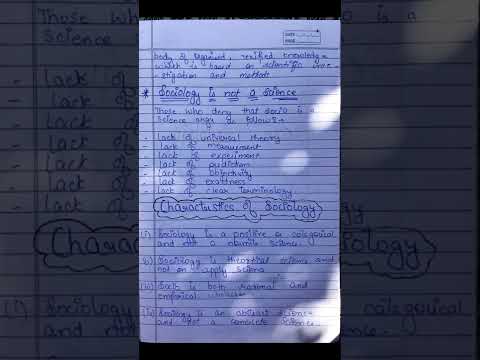 DATE
PAGE
body of organised verified knowledge
which is based on scientific inve-
-stigation and methods.
* Sociology is not a science
Those who deny that socio is a
science argue as follows :-
- Lack of universal theory
- Lack of measurement
- Lack of experiment
- Lack of prediction
- Lack of objectivity
- Lack of exactness
- Lack of clear terminology
Characteristics of Sociology
(i) Sociology is a positive or categorical
and not a science.
(ii) Sociology is theoretical science and
not an apply science
(iii) Socio is both rational and
emperical
(iv) Sociology is an abstract science
and not a concrete science.